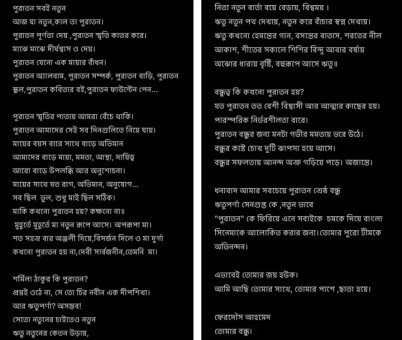 পুরাতন সবই নতুন
আজ যা নতুন,কাল তা পুরাতন।
পুরাতন পূর্ণতা দেয় ,পুরাতন স্মৃতি কাতর করে।
মাঝে মাঝে দীর্ঘশ্বাস ও দেয়।
পুরাতন যেনো এক মায়ার বাঁধন।
পুরাতন অ্যালবাম, পুরাতন সম্পর্ক, পুরাতন বাড়ি, পুরাতন
স্কুল,পুরাতন কবিতার বই,পুরাতন ফাউন্টেন পেন...
পুরাতন স্মৃতির পাতায় আমরা বেঁচে থাকি।
পুরাতন আমাদের সেই সব দিনগুলিতে নিয়ে যায়।
মায়ের বয়স বারে সাথে বাড়ে অভিমান
আমাদের বাড়ে মায়া, মমতা, আস্থা, দায়িত্ব
আরো বাড়ে উপলব্ধি আর অনুশোচনা।
মায়ের সাথে যত রাগ, অভিমান, অনুযোগ...
সব ছিল ভুল, শুধু মাই ছিল সঠিক।
মাকি কখনো পুরাতন হয়? কক্ষনো না॥
মুহূর্তে মুহূর্তে মা নতুন রূপে আসে। অপরূপা মা।
শত সহস্র বার অঞ্জলী নিয়ে,বিসর্জন দিলে ও মা দুর্গা
কখনো পুরাতন হয় না,দেবী সার্বজনীন,তেমনি মা।
শর্মিলা ঠাকুর কি পুরাতন?
প্রশ্নই ওঠে না, সে তো চির নবীন এক দীপশিখা।
আর ঋতুপর্ণা? অসম্ভব!
সেতো নতুনের চাইতেও নতুন
ঋতু নতুনের কেতন উড়ায়,
নিতা নতুন বার্তা বয়ে বেড়ায়, বিস্ময়ম ।
ঋতু নতুন পথ দেখায়, নতুন করে বাঁচার স্বপ্ন দেখায়।
ঋতু কখনো হেমন্তের গান, বসন্তের বাতাস, শরতের নীল
আকাশ, শীতের সকালে শিশির বিন্দু আবার বর্ষায়
অঝোর ধারায় বৃষ্টি, বহুরূপে আসে ঋতু॥
বন্ধুত্ব কি কখনো পুরাতন হয়?
যত পুরাতন তত বেশী বিশ্বাসী আর আত্মার কাছের হয়।
পারস্পরিক নির্ভরশীলতা বারে।
পুরাতন বন্ধুর জন্য মনটা গভীর মমতায় ভরে উঠে।
বন্ধুর কষ্টে চোখ দুটি ঝাপসা হয়ে আসে।
বন্ধুর সফলতায় আনন্দ অশ্রু গড়িয়ে পড়ে। অজান্তে।
ধন্যবাদ আমার সবচেয়ে পুরাতন শ্রেষ্ঠ বন্ধু
ঋতুপর্ণা সেনগুপ্ত কে ,নতুন ভাবে
"পুরাতন" কে ফিরিয়ে এনে সবাইকে চমকে দিয়ে বাংলা
সিনেমাকে আলোকিত করার জন্য।তোমার পুরো টীমকে
অভিনন্দন।
এভাবেই তোমার জয় হউক।
আমি আছি তোমার সাথে, তোমার পাশে ,ছায়া হয়ে।
ফেরদৌস আহমেদ
তোমার বন্ধু।